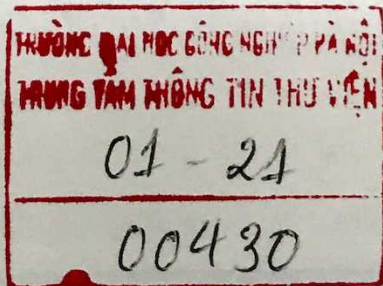 TRƯỜNG ĐẠI HỌC CÔNG NGHIỆP HÀ NỘI
TRUNG TÂM THÔNG TIN THƯ VIỆN
01 - 21
00430